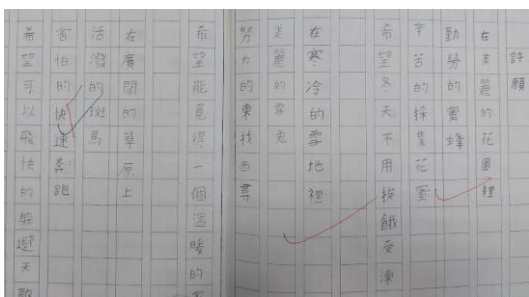 許願
在美麗的花園裡
勤勞的蜜蜂
辛苦的採集花蜜
希望冬天不用挨餓受凍
在寒冷的雪地裡
美麗的雪兔
努力的東找西尋
希望能覓得一個溫暖的
在廣闊的草原上
活潑的斑馬
害怕的快速奔跑
希望可以飛快的躲避天敵